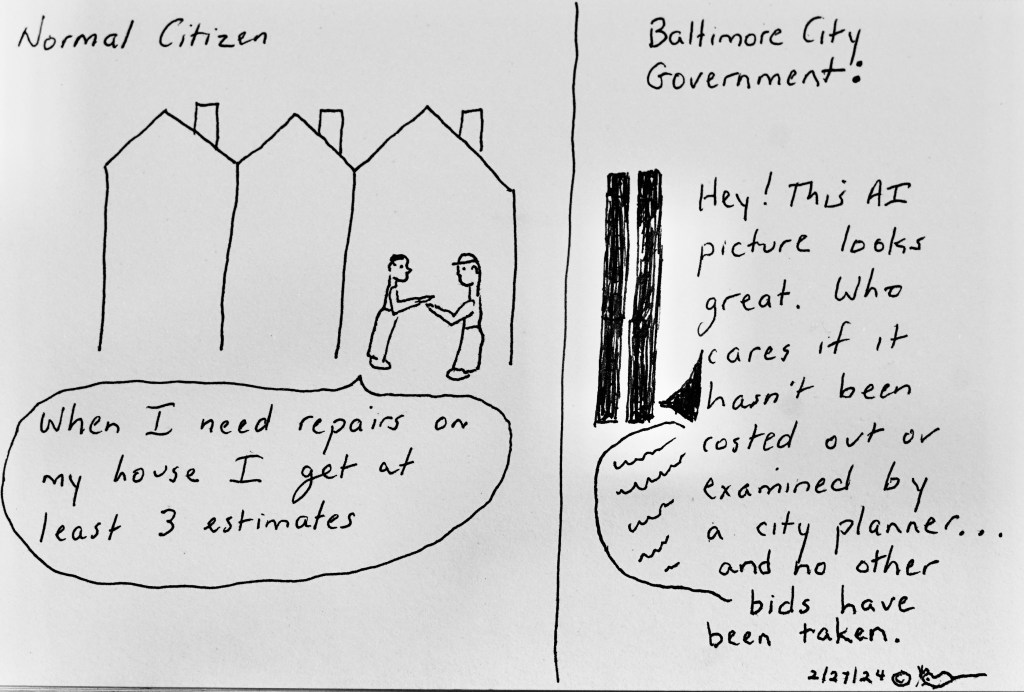 Normal Citizen
When I need repairs on
my house I get at
least 3 estimates
Baltimore City
Government:
Hey! This AI
picture looks
great. Who
cares if it
hasn't been
costed out or
examined by
a city planner...
and no other
bids have
been taken.
2/27/24 ©